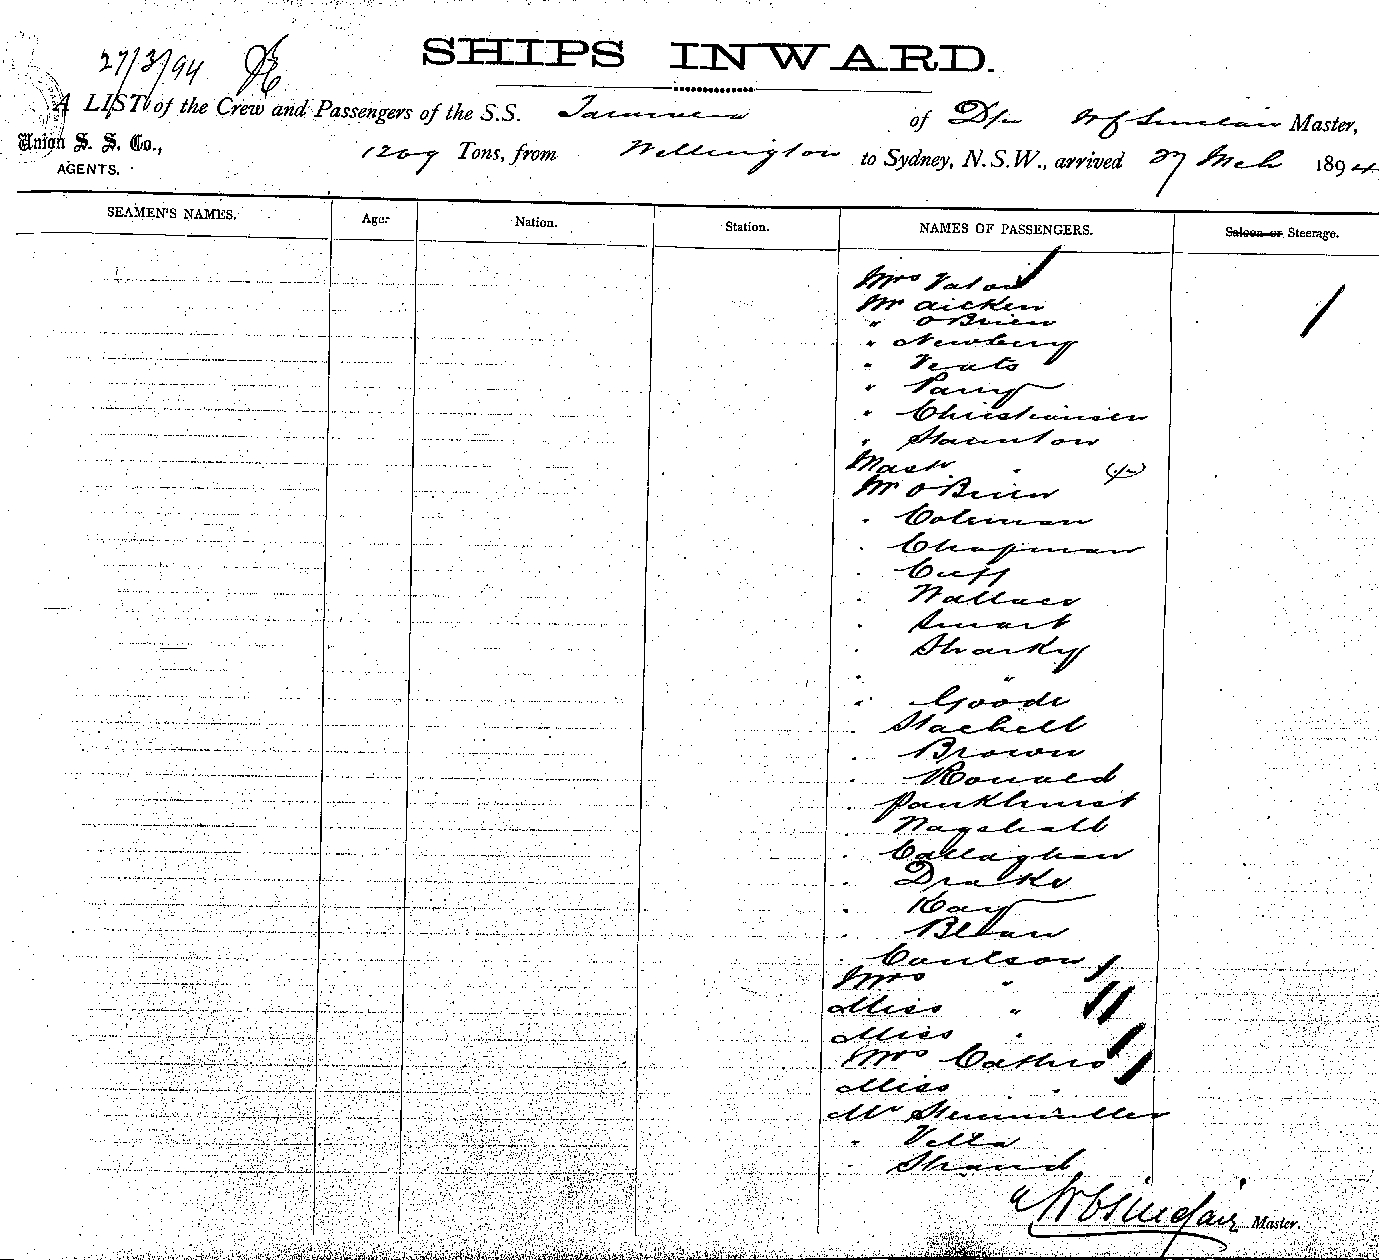 27/3/94
SHIPS INWARD.
A LIST of the Crew and Passengers of the S.S. Tarawera of D/n W C Sinclair Master,
Union S. S. Co., AGENTS.
1209 Tons, from Wellington to Sydney, N.S.W., arrived 27 Mch 1894
SEAMEN'S NAMES. Age. Nation. Station. NAMES OF PASSENGERS. Saloon or Steerage.
Mrs
Mr Aitken
" O'Brien
" Newbery
"
" Parry
" Christiansen
" Staunton
Mastr "
Mr O'Brien
" Coleman
" Chapman
" Cuff
" Wallace
" Smart
" Sharkey
" "
" Goode
"
" Brown
" Ronald
" Pankhurst
"
" Callaghan
" Drake
" Kay
"
" Coulson
Mrs "
Miss "
Miss "
Mrs
Miss "
Mr
" Vella
" Strand
W C Sinclair Master.